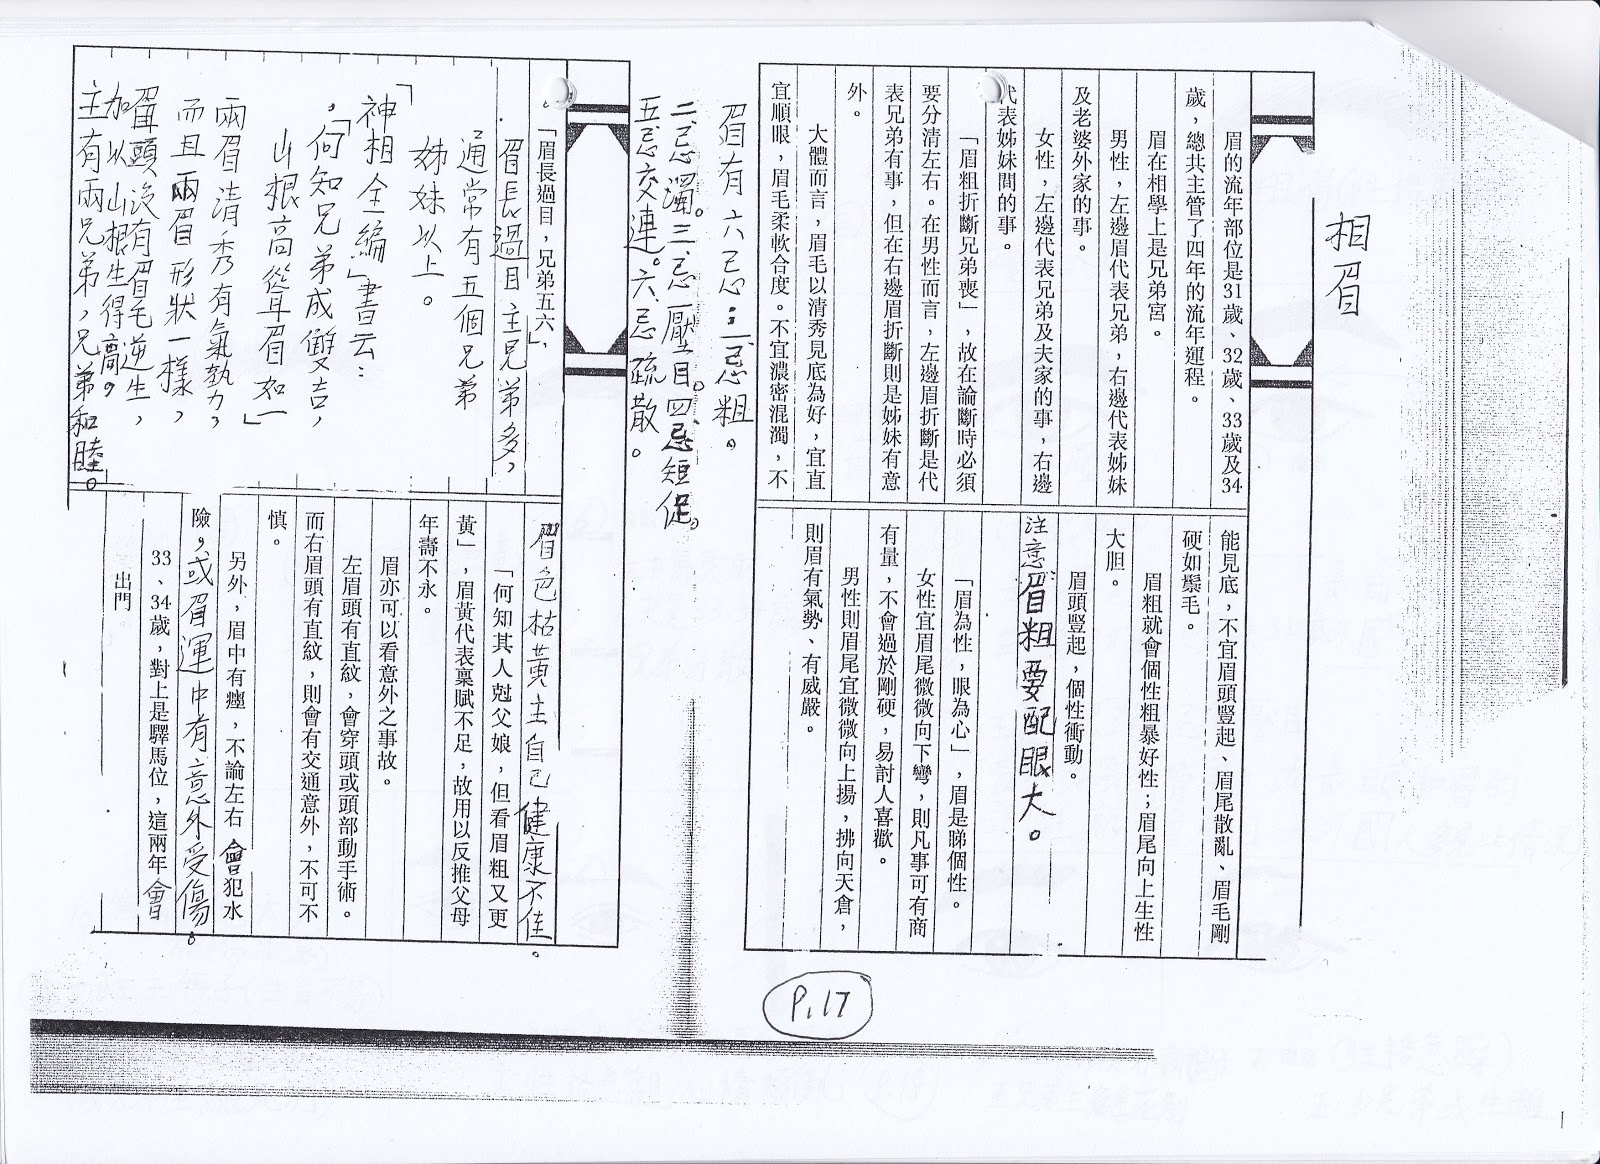 相眉
眉的流年部位是31歲、32歲、33歲及34
歲，總共主管了四年的流年運程。
眉在相學上是兄弟宮。
男性，左邊眉代表兄弟，右邊代表姊妹
及老婆外家的事。
女性，左邊代表兄弟及夫家的事，右邊
代表姊妹間的事。
「眉粗折斷兄弟喪」，故在論斷時必須
要分清左右。在男性而言，左邊眉折斷是代
表兄弟有事，但在右邊眉折斷則是姊妹有意
外。
大體而言，眉毛以清秀見底為好，宜直
宜順眼，眉毛柔軟合度。不宜濃密混濁，不
能見底，不宜眉頭豎起、眉尾散亂、眉毛剛
硬如鬃毛。
眉粗就會個性粗暴好性；眉尾向上生性
大胆。
眉頭豎起，個性衝動。
注意眉粗要配眼大。
「眉為性，眼為心」，眉是睇個性。
女性宜眉尾微微向下彎，則凡事可有商
有量，不會過於剛硬，易討人喜歡。
男性則眉尾宜微微向上揚，拂向天倉，
則眉有氣勢、有威嚴。
眉有六忌：一忌粗。
二忌濁。三忌壓目。四忌短促。
五忌交連。六忌疏散。
。「眉長過目，兄弟五六」，
眉長過目主兄弟多，
通常有五個兄弟
姊妹以上。
「神相全編」書云：
「何知兄弟成雙吉，
山根高聳眉如一」
兩眉清秀有氣勢，
而且兩眉形狀一樣，
眉頭沒有眉毛逆生，
加以山根生得高。
主有兩兄弟，兄弟和睦。
眉色枯黃主自己健康不佳。
「何知其人尅父娘，但看眉粗又更
黃」，眉黃代表稟賦不足，故用以反推父母
年壽不永。
眉亦可以看意外之事故。
左眉頭有直紋，會穿頭或頭部動手術。
而右眉頭有直紋，則會有交通意外，不可不
慎。
另外，眉中有癦，不論左右會犯水
險。或眉運中有意外受傷。
33、34歲，對上是驛馬位，這兩年會
出門。
P.17